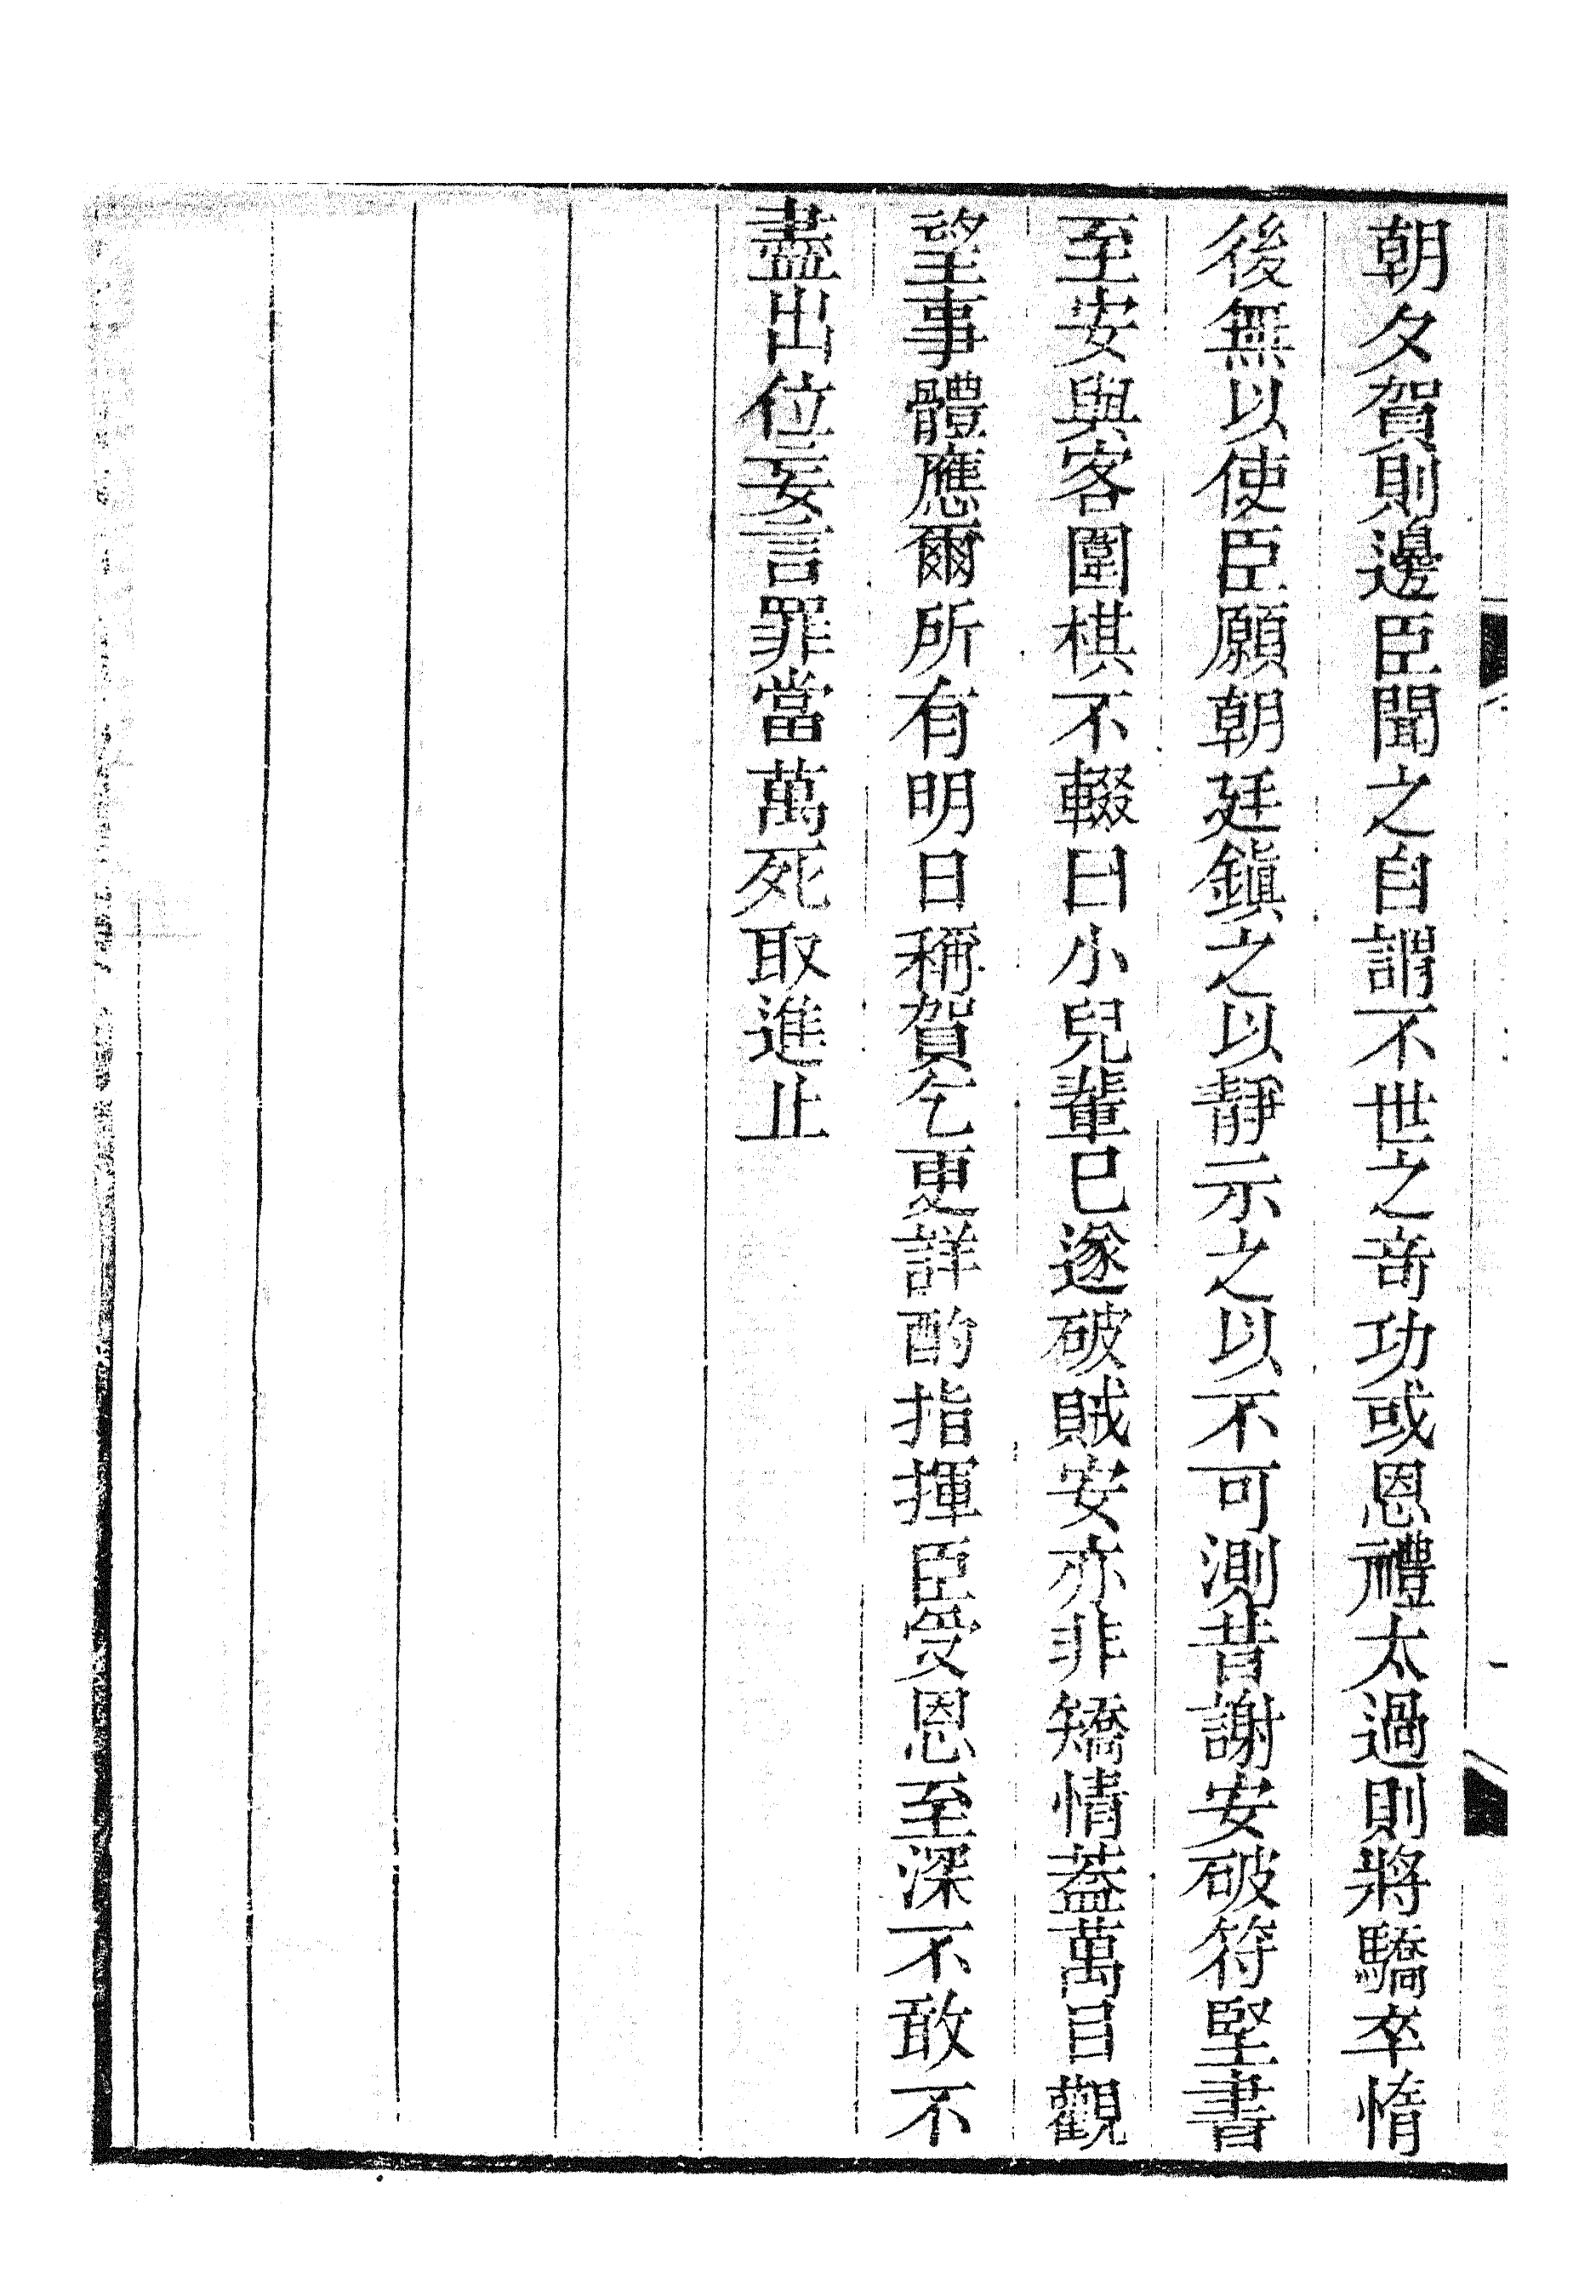 朝夕賀則邊臣聞之自謂不世之竒功或恩禮太過則將驕卒惰
後無以使臣願朝廷鎭之以靜示之以不可測昔謝安破符堅書
至安與客圍棋不輟曰小兒輩已遂破賊安亦非矯情葢萬目觀
望事體應爾所有明日稱賀乞更詳酌指揮臣受恩至深不敢不
盡出位妄言罪當萬死取進止